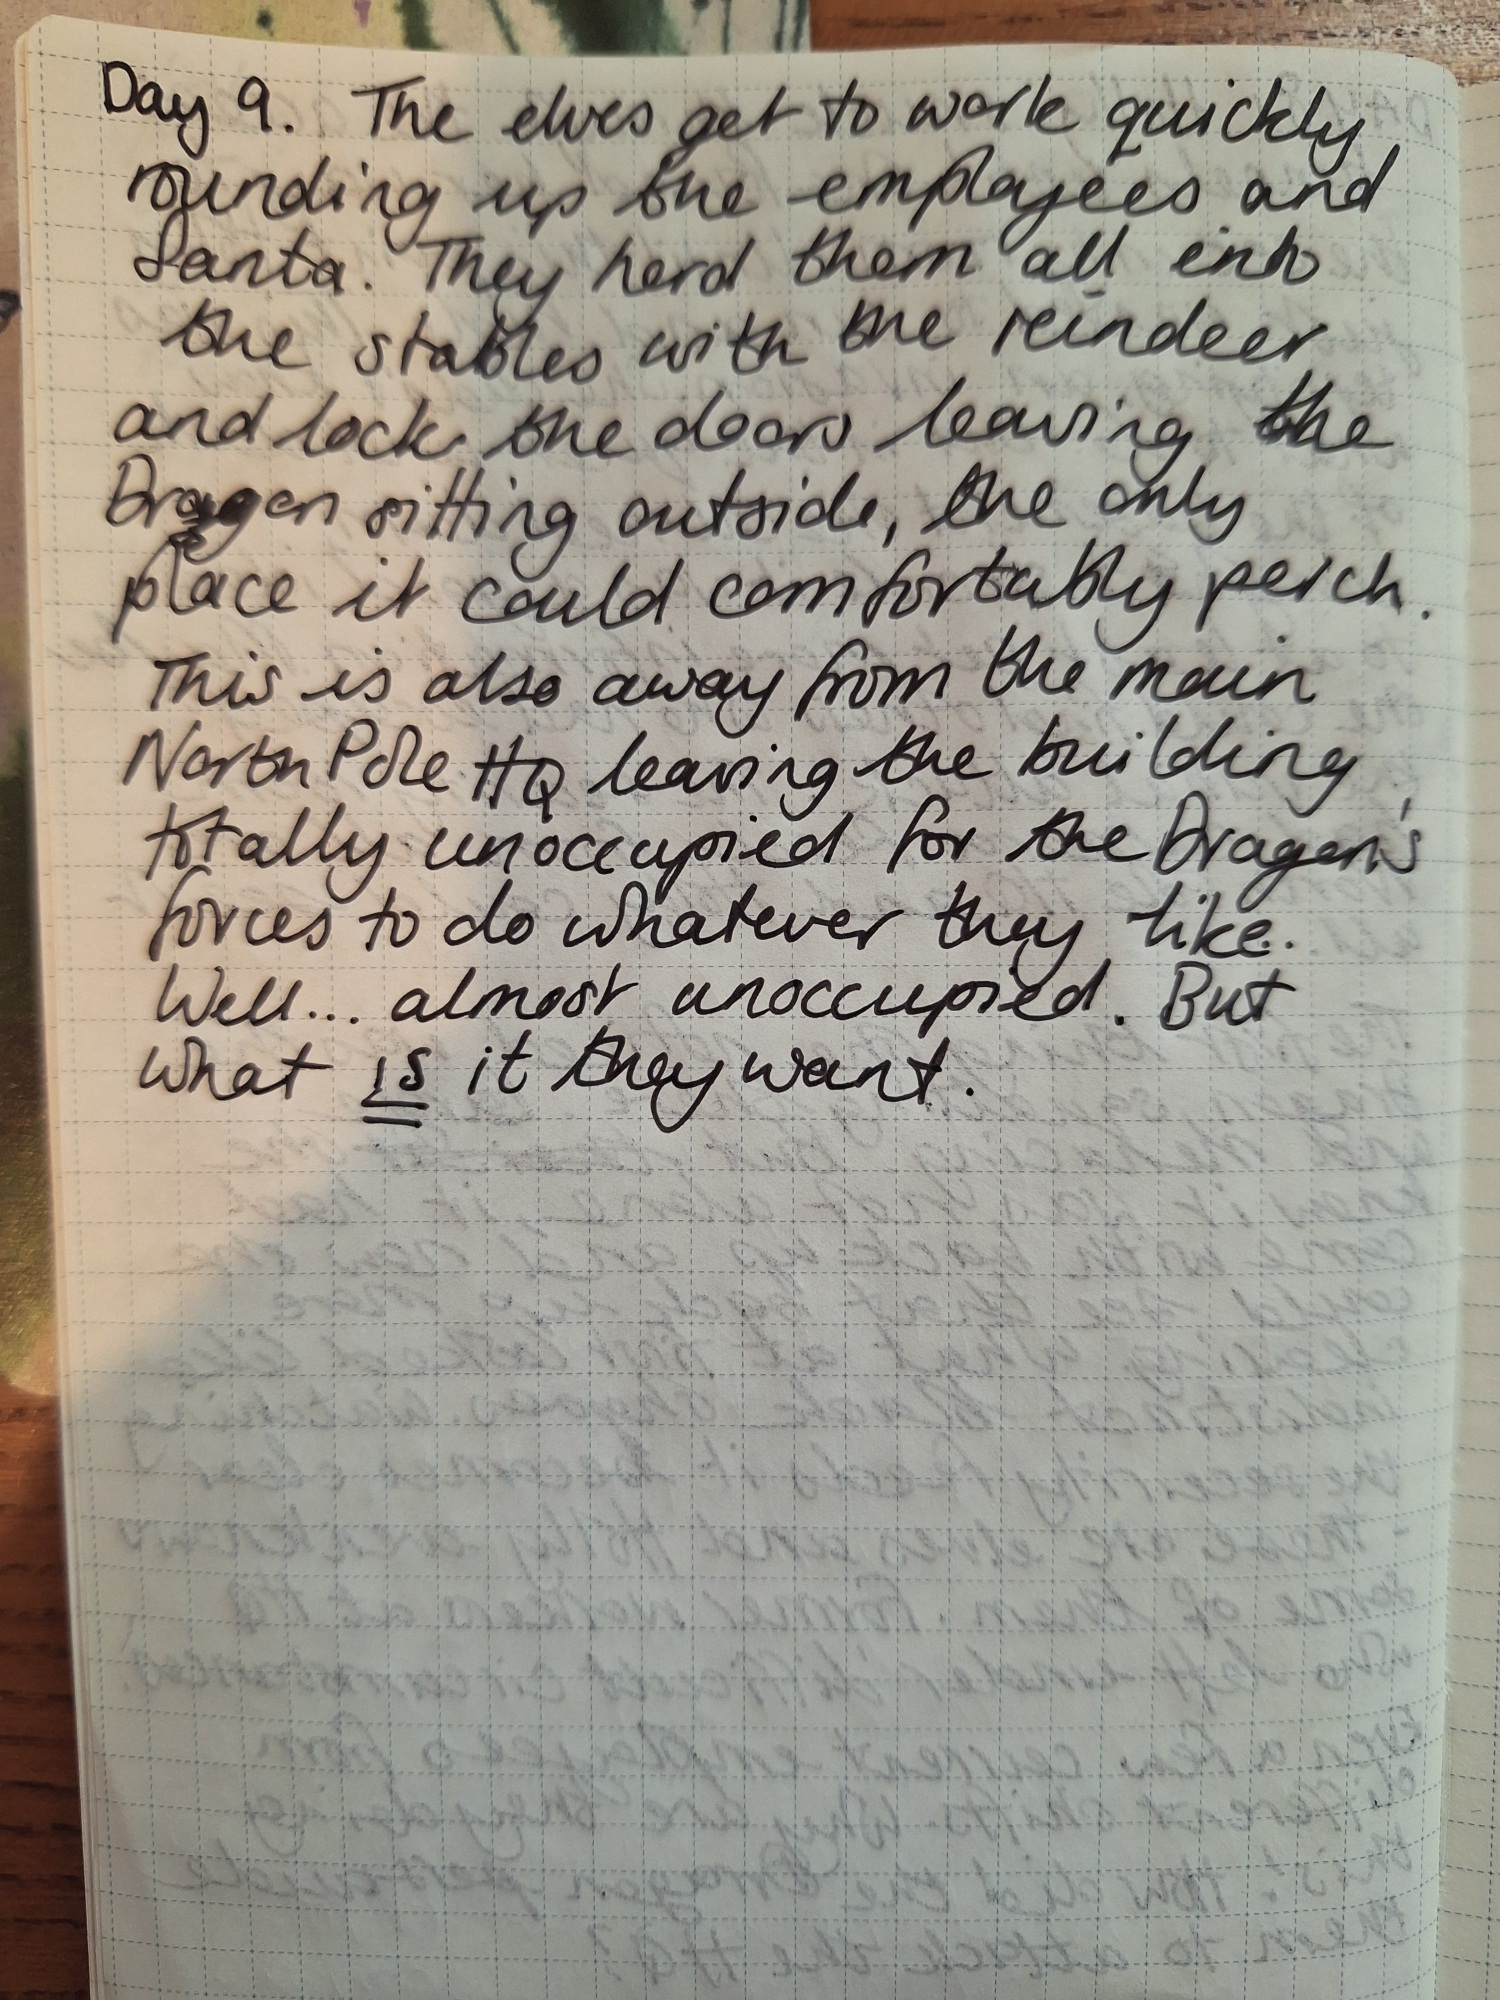 Day 9. The elves get to work quickly,
rounding up the employees and
Santa. They herd them all into
the stables with the reindeer
and lock the doors leaving the
Dragon sitting outside, the only
place it could comfortably perch.
This is also away from the main
North Pole HQ leaving the building
totally unoccupied for the Dragon's
forces to do whatever they like.
Well... almost unoccupied. But
what is it they want.